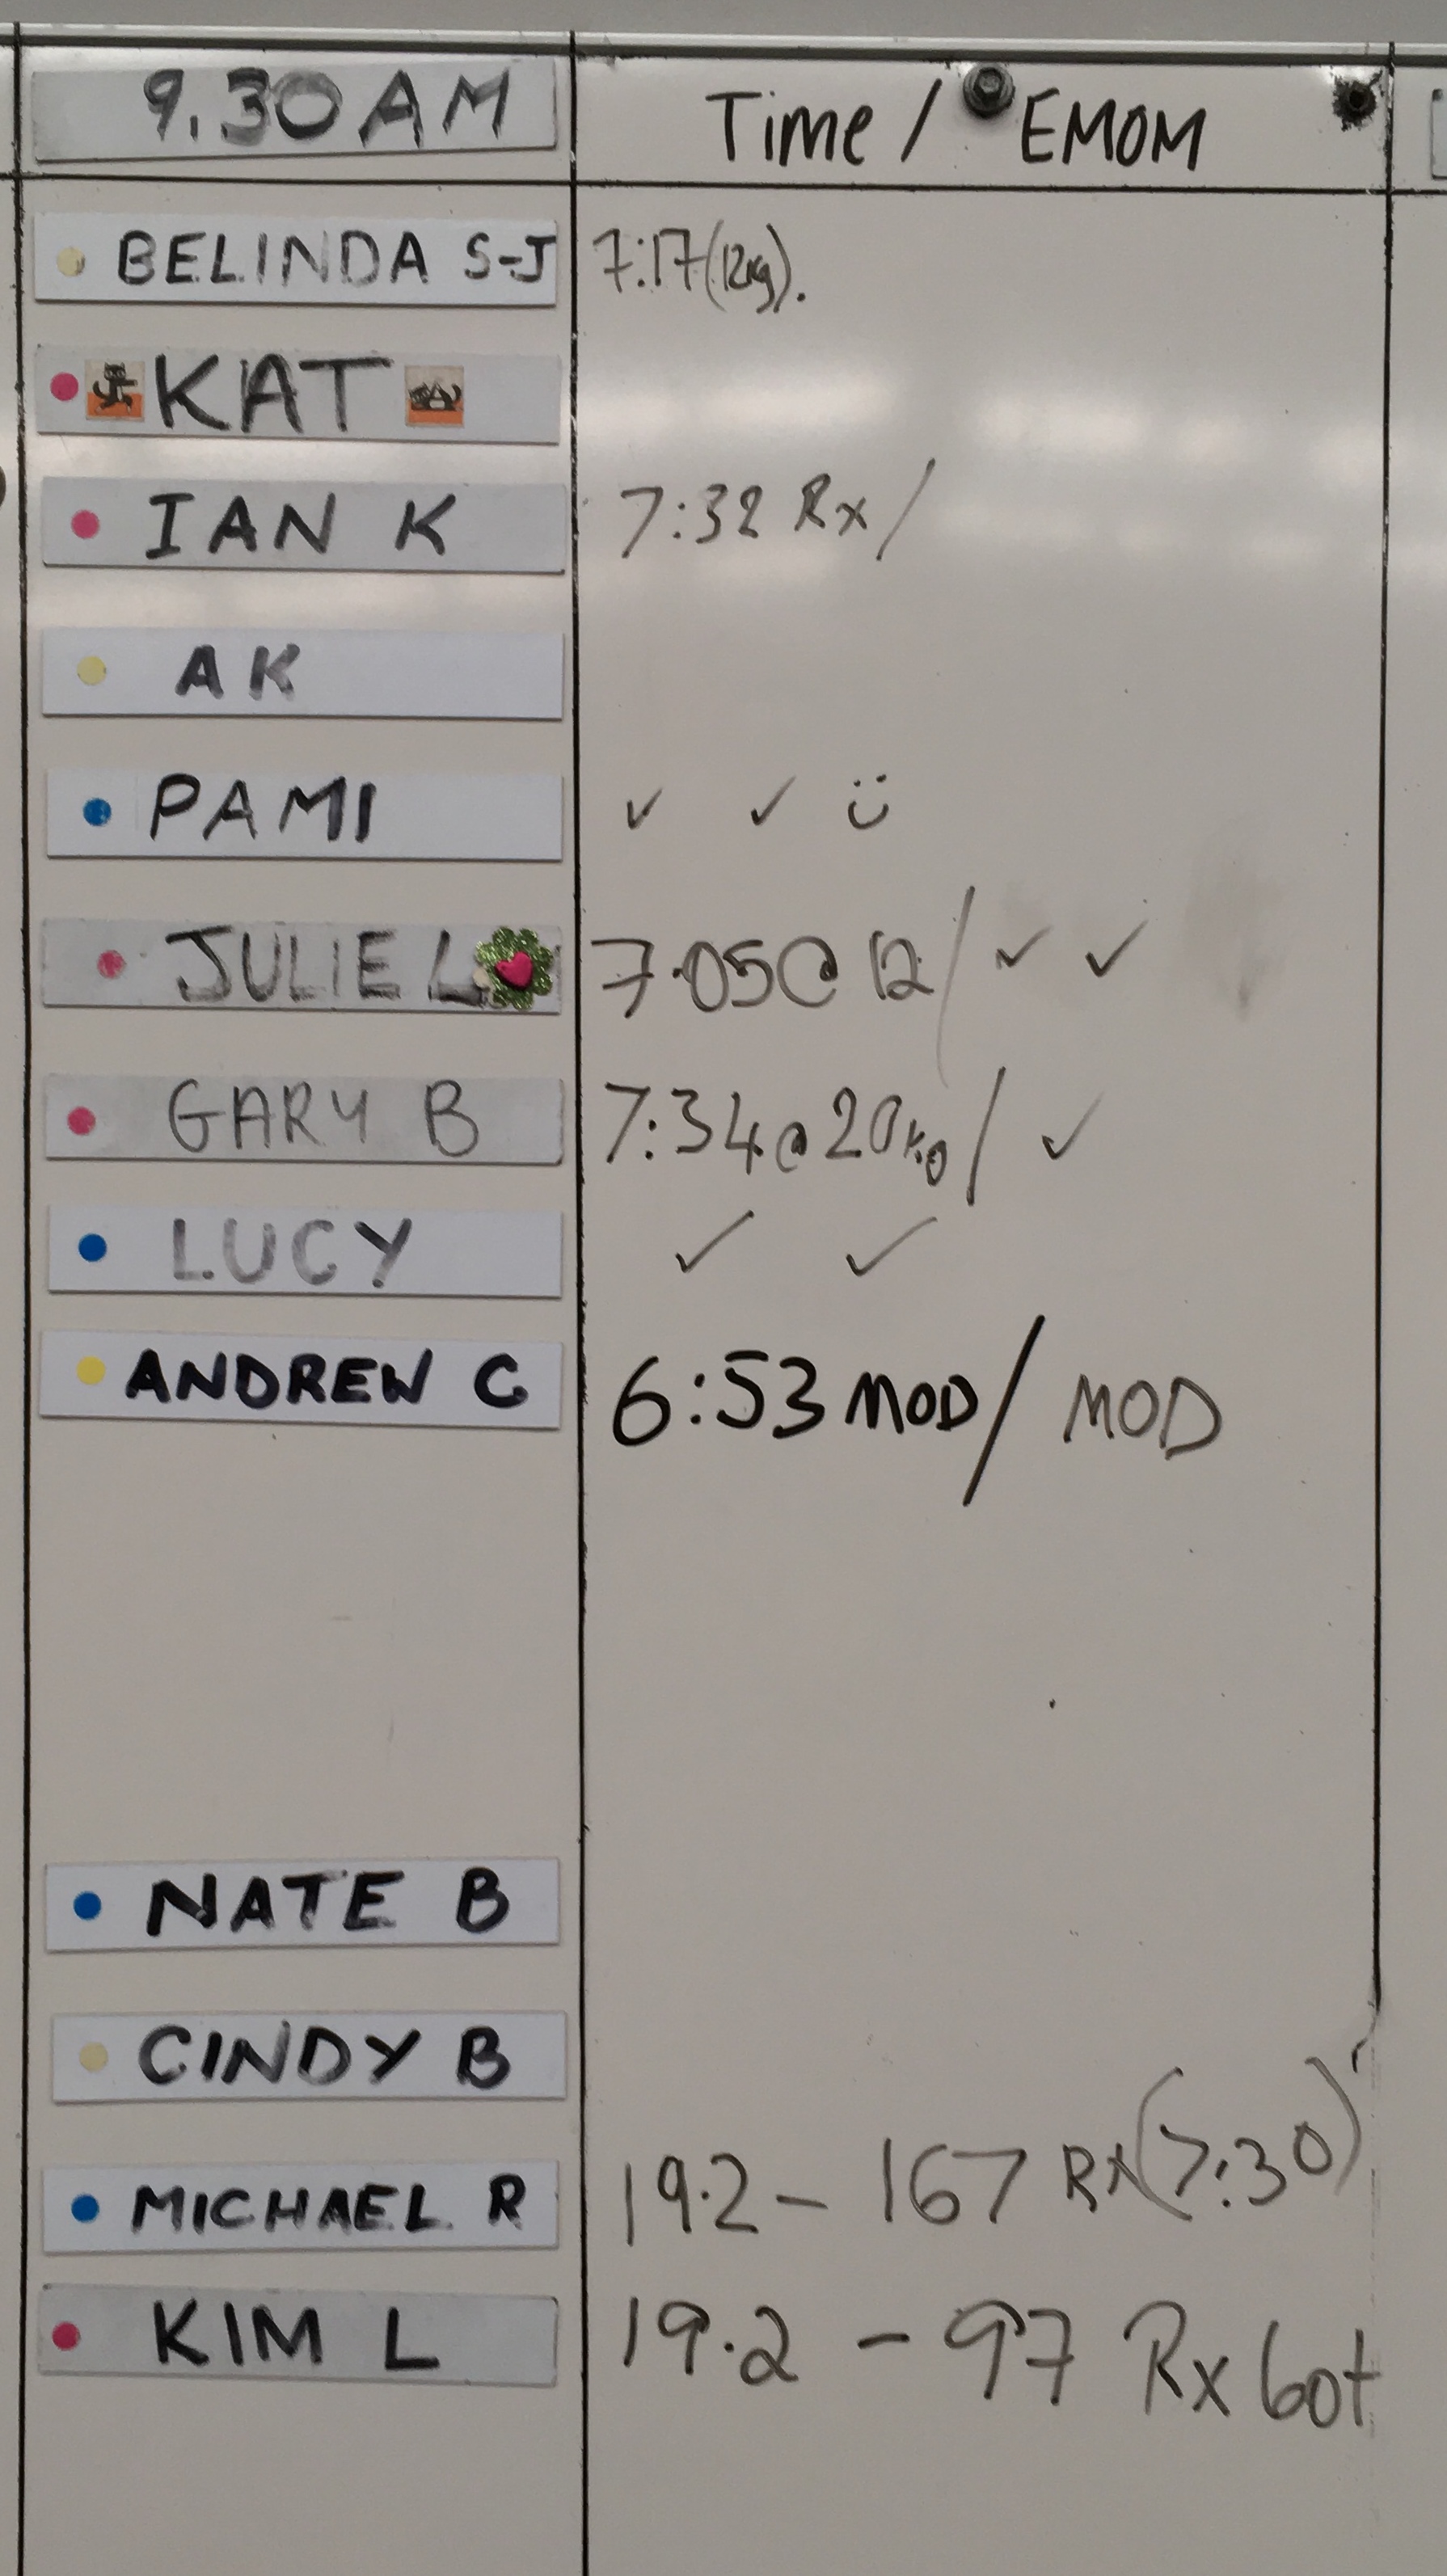 9.30 AM Time / EMOM
BELINDA S-J 7:17 (12kg).
KAT
IAN K 7:32 Rx /
AK
PAMI ✓ ✓ ü
JULIE L 7.05 @ 12 / ✓ ✓
GARY B 7:34 @ 20kg / ✓
LUCY ✓ ✓
ANDREW C 6:53 MOD / MOD
NATE B
CINDY B
MICHAEL R 19.2 - 167 Rx (7:30)
KIM L 19.2 - 97 Rx 60+